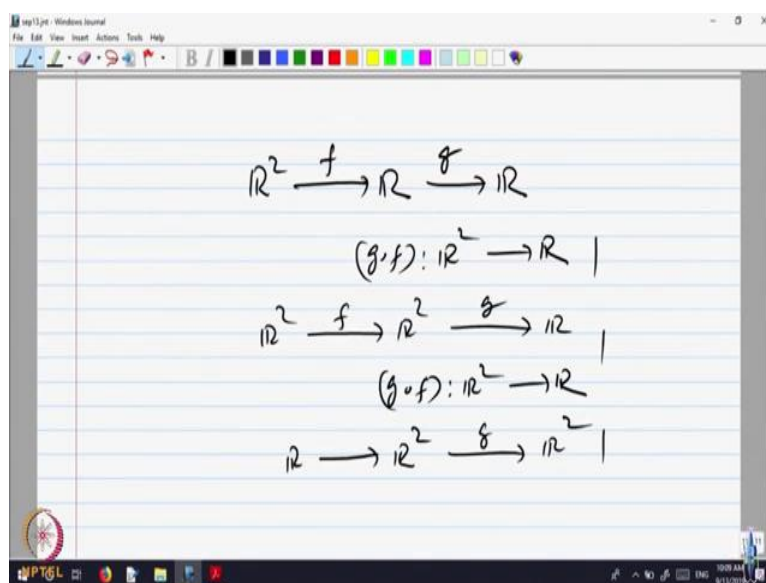 sep13.jnt - Windows Journal
File Edit View Insert Actions Tools Help
B I
ℝ² —f→ ℝ —g→ ℝ
(g∘f): ℝ² → ℝ |
ℝ² —f→ ℝ² —g→ ℝ |
(g∘f): ℝ² → ℝ
ℝ → ℝ² —g→ ℝ² |
NPTEL ENG 10:09 AM
9/13/2019